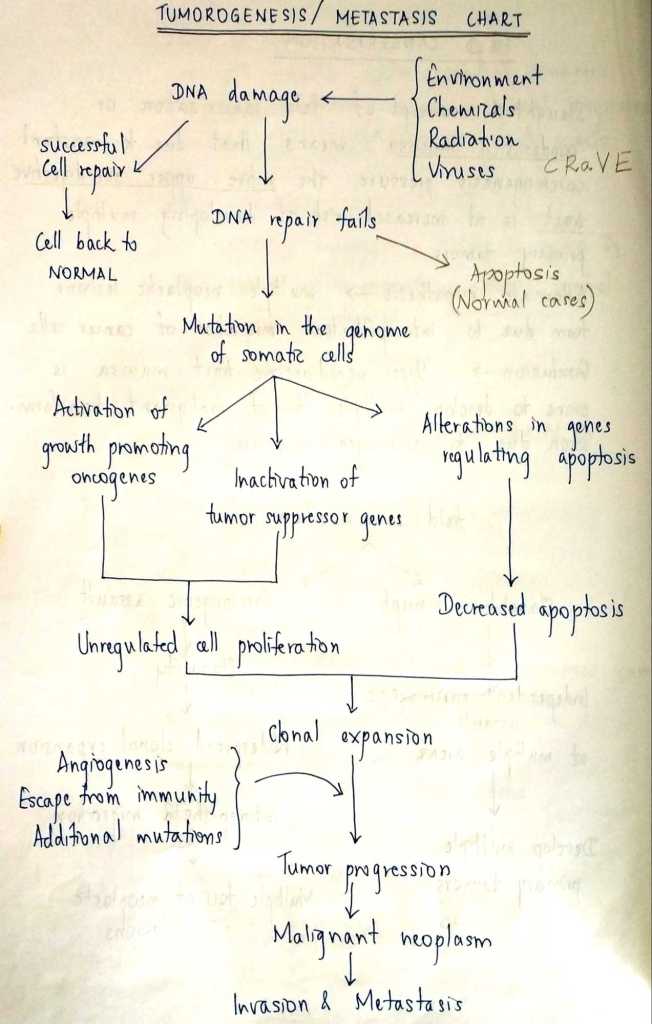 TUMOROGENESIS/ METASTASIS CHART
DNA damage
Environment
Chemicals
Radiation
Viruses
CRaVE
successful
Cell repair
Cell back to
NORMAL
DNA repair fails
Apoptosis
(Normal cases)
Mutation in the genome
of somatic cells
Activation of
growth promoting
oncogenes
Inactivation of
tumor suppressor genes
Alterations in genes
regulating apoptosis
Decreased apoptosis
Unregulated cell proliferation
Clonal expansion
Angiogenesis
Escape from immunity
Additional mutations
Tumor progression
Malignant neoplasm
Invasion & Metastasis